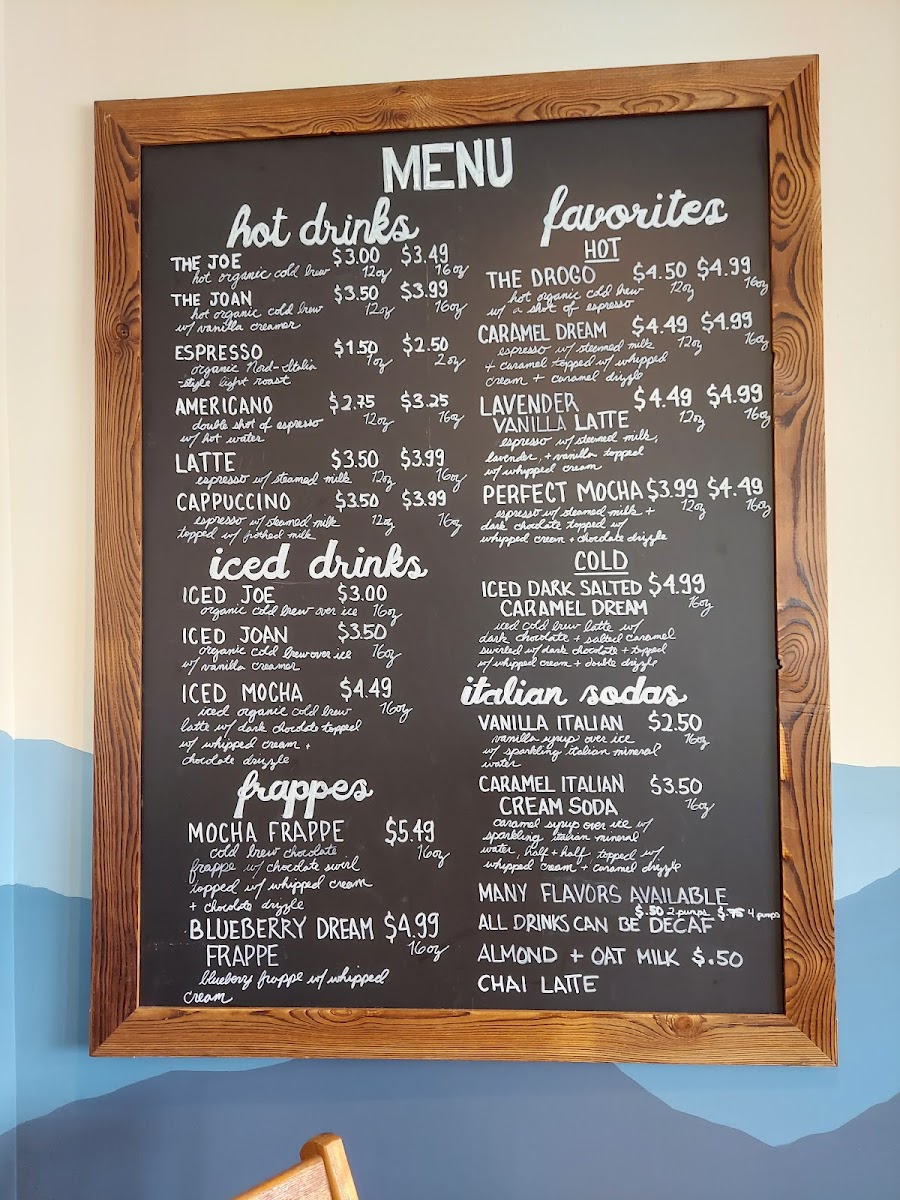 MENU
hot drinks
THE JOE $3.00 $3.49
hot organic cold brew 12oz 16oz
THE JOAN $3.50 $3.99
hot organic cold brew 12oz 16oz
w/ vanilla creamer
ESPRESSO $1.50 $2.50
organic Nord-Italia 1oz 2oz
-style light roast
AMERICANO $2.75 $3.25
double shot of espresso 12oz 16oz
w/ hot water
LATTE $3.50 $3.99
espresso w/ steamed milk 12oz 16oz
CAPPUCCINO $3.50 $3.99
espresso w/ steamed milk 12oz 16oz
topped w/ frothed milk
iced drinks
ICED JOE $3.00
organic cold brew over ice 16oz
ICED JOAN $3.50
organic cold brew over ice 16oz
w/ vanilla creamer
ICED MOCHA $4.49
iced organic cold brew 16oz
latte w/ dark chocolate topped
w/ whipped cream +
chocolate drizzle
frappes
MOCHA FRAPPE $5.49
cold brew chocolate 16oz
frappe w/ chocolate swirl
topped w/ whipped cream
+ chocolate drizzle
BLUEBERRY DREAM $4.99
FRAPPE 16oz
blueberry frappe w/ whipped
cream
favorites
HOT
THE DROGO $4.50 $4.99
hot organic cold brew 12oz 16oz
w/ a shot of espresso
CARAMEL DREAM $4.49 $4.99
espresso w/ steamed milk 12oz 16oz
+ caramel topped w/ whipped
cream + caramel drizzle
LAVENDER $4.49 $4.99
VANILLA LATTE 12oz 16oz
espresso w/ steamed milk,
lavender, + vanilla topped
w/ whipped cream
PERFECT MOCHA $3.99 $4.49
espresso w/ steamed milk + 12oz 16oz
dark chocolate topped w/
whipped cream + chocolate drizzle
COLD
ICED DARK SALTED $4.99
CARAMEL DREAM 16oz
iced cold brew latte w/
dark chocolate + salted caramel
swirled w/ dark chocolate + topped
w/ whipped cream + double drizzle
italian sodas
VANILLA ITALIAN $2.50
vanilla syrup over ice 16oz
w/ sparkling italian mineral
water
CARAMEL ITALIAN $3.50
CREAM SODA 16oz
caramel syrup over ice w/
sparkling italian mineral
water, half + half, topped w/
whipped cream + caramel drizzle
MANY FLAVORS AVAILABLE
$.50 2 pumps $.75 4 pumps
ALL DRINKS CAN BE DECAF
ALMOND + OAT MILK $.50
CHAI LATTE